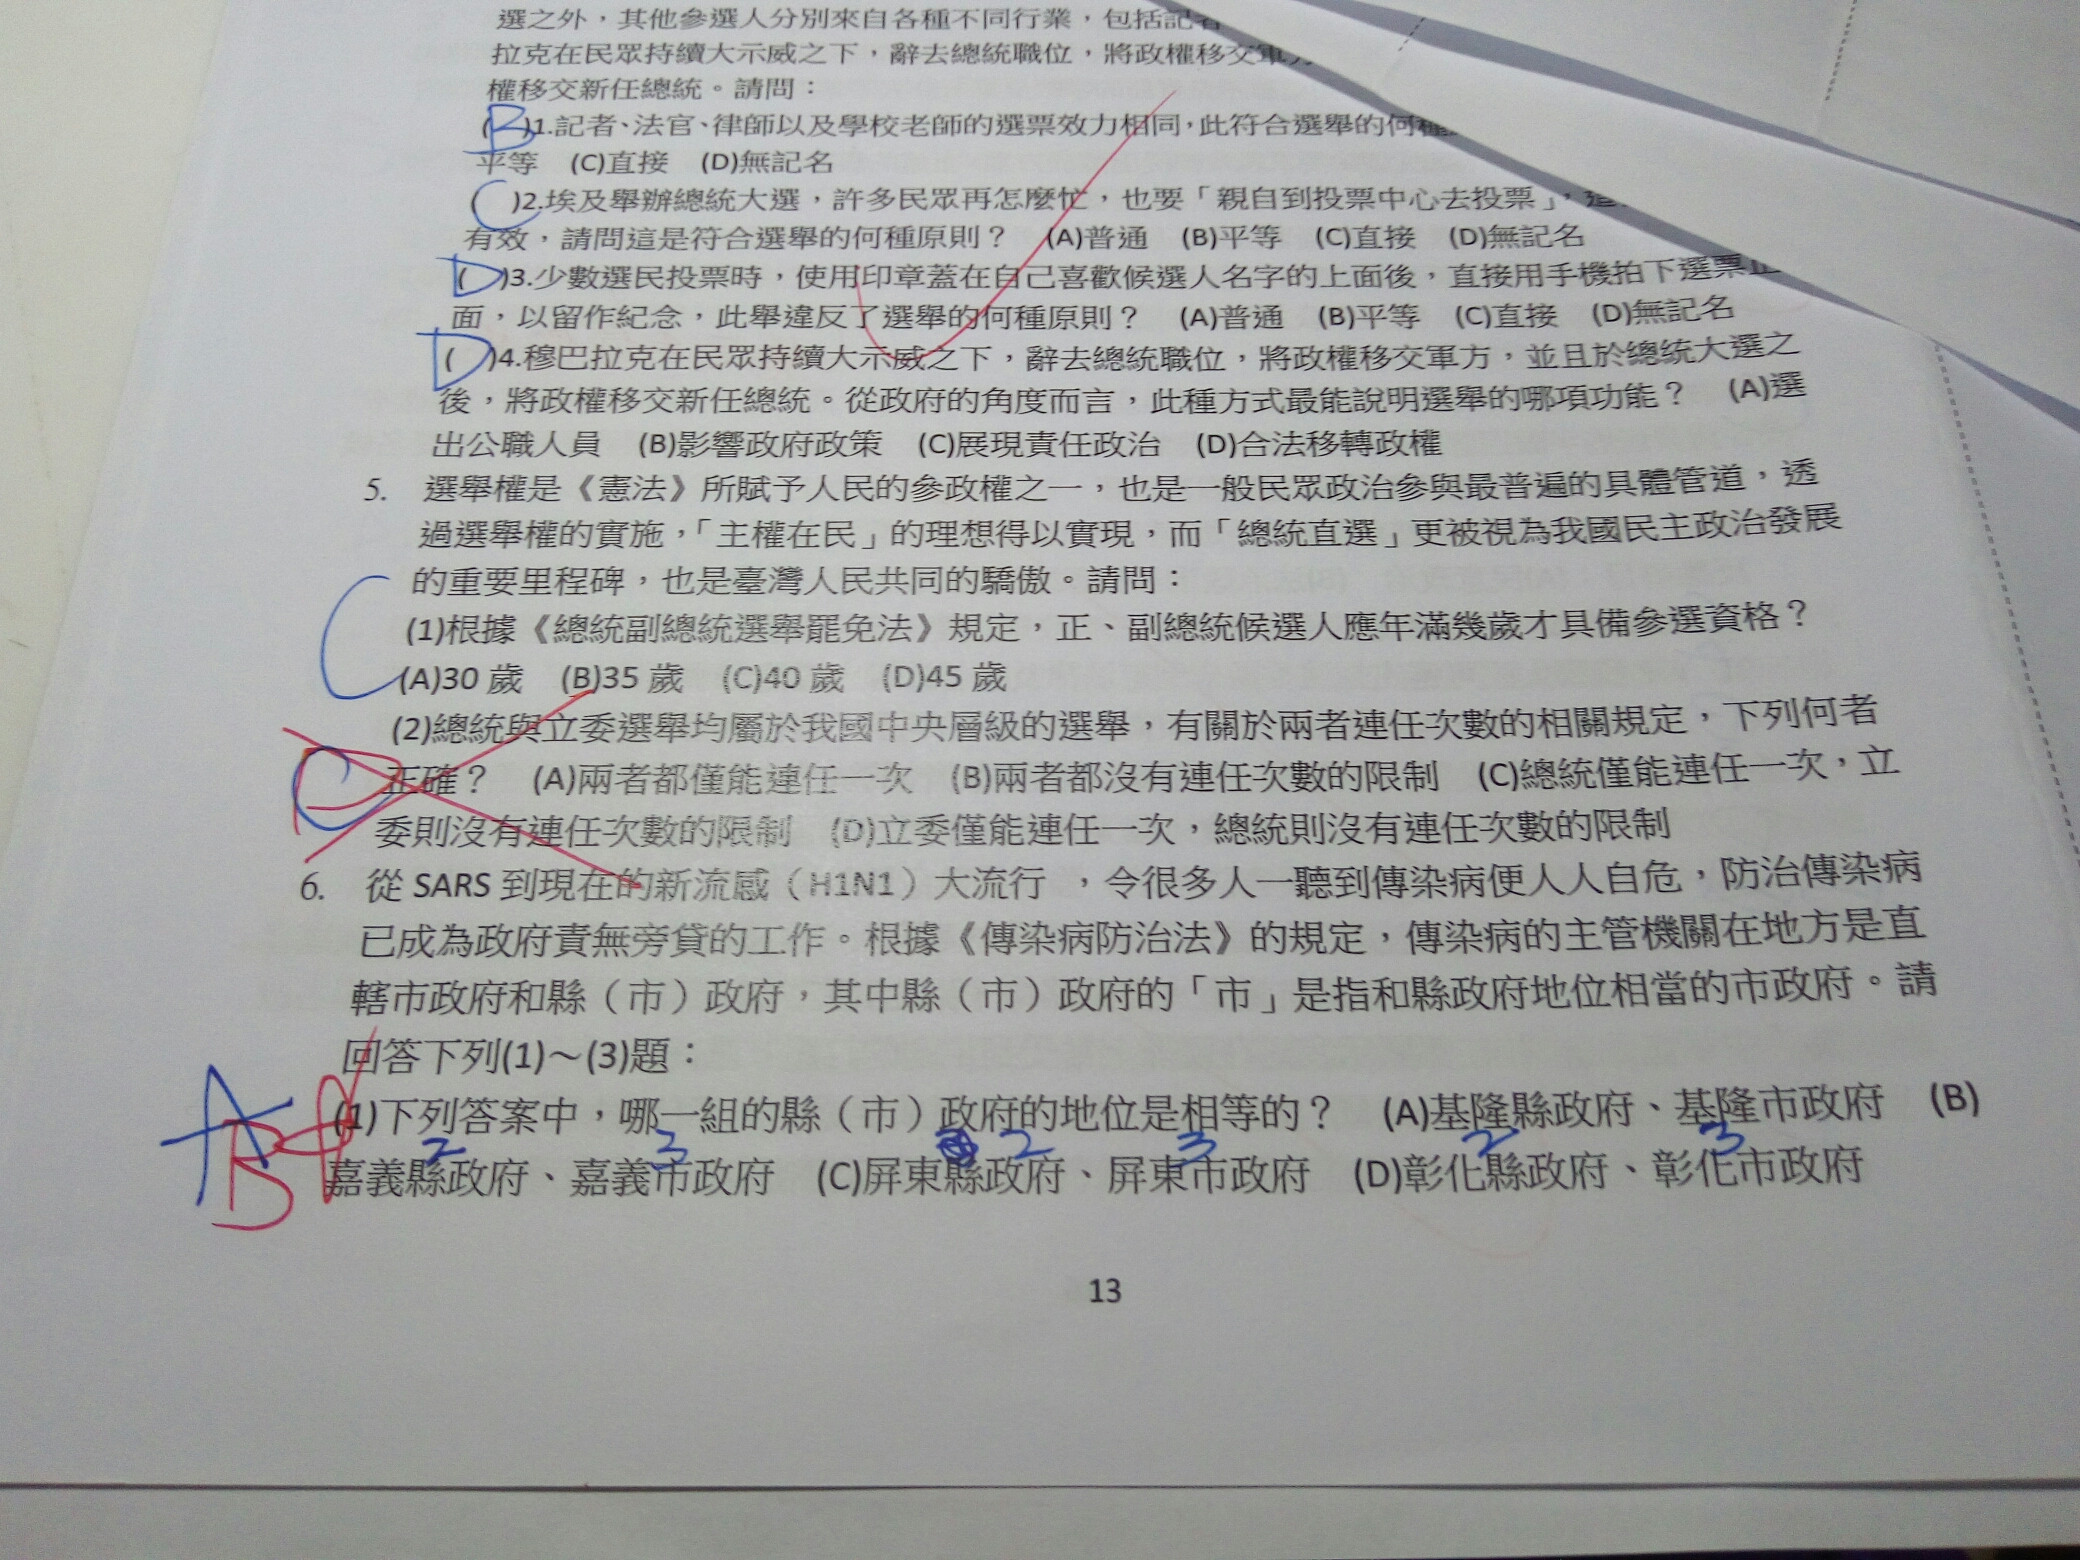 選之外，其他參選人分別來自各種不同行業，包括記者
拉克在民眾持續大示威之下，辭去總統職位，將政權移交軍方
權移交新任總統。請問：
(B)1.記者、法官、律師以及學校老師的選票效力相同，此符合選舉的何種
平等 (C)直接 (D)無記名
(C)2.埃及舉辦總統大選，許多民眾再怎麼忙，也要「親自到投票中心去投票」，這
有效，請問這是符合選舉的何種原則？ (A)普通 (B)平等 (C)直接 (D)無記名
(D)3.少數選民投票時，使用印章蓋在自己喜歡候選人名字的上面後，直接用手機拍下選票正
面，以留作紀念，此舉違反了選舉的何種原則？ (A)普通 (B)平等 (C)直接 (D)無記名
(D)4.穆巴拉克在民眾持續大示威之下，辭去總統職位，將政權移交軍方，並且於總統大選之
後，將政權移交新任總統。從政府的角度而言，此種方式最能說明選舉的哪項功能？ (A)選
出公職人員 (B)影響政府政策 (C)展現責任政治 (D)合法移轉政權
5. 選舉權是《憲法》所賦予人民的參政權之一，也是一般民眾政治參與最普遍的具體管道，透
過選舉權的實施，「主權在民」的理想得以實現，而「總統直選」更被視為我國民主政治發展
的重要里程碑，也是臺灣人民共同的驕傲。請問：
C (1)根據《總統副總統選舉罷免法》規定，正、副總統候選人應年滿幾歲才具備參選資格？
(A)30 歲 (B)35 歲 (C)40 歲 (D)45 歲
(2)總統與立委選舉均屬於我國中央層級的選舉，有關於兩者連任次數的相關規定，下列何者
正確？ (A)兩者都僅能連任一次 (B)兩者都沒有連任次數的限制 (C)總統僅能連任一次，立
委則沒有連任次數的限制 (D)立委僅能連任一次，總統則沒有連任次數的限制
6. 從 SARS 到現在的新流感（H1N1）大流行 ，令很多人一聽到傳染病便人人自危，防治傳染病
已成為政府責無旁貸的工作。根據《傳染病防治法》的規定，傳染病的主管機關在地方是直
轄市政府和縣（市）政府，其中縣（市）政府的「市」是指和縣政府地位相當的市政府。請
回答下列(1)～(3)題：
A B (1)下列答案中，哪一組的縣（市）政府的地位是相等的？ (A)基隆縣政府、基隆市政府 (B)
2 3 2 3 2 3
嘉義縣政府、嘉義市政府 (C)屏東縣政府、屏東市政府 (D)彰化縣政府、彰化市政府
13